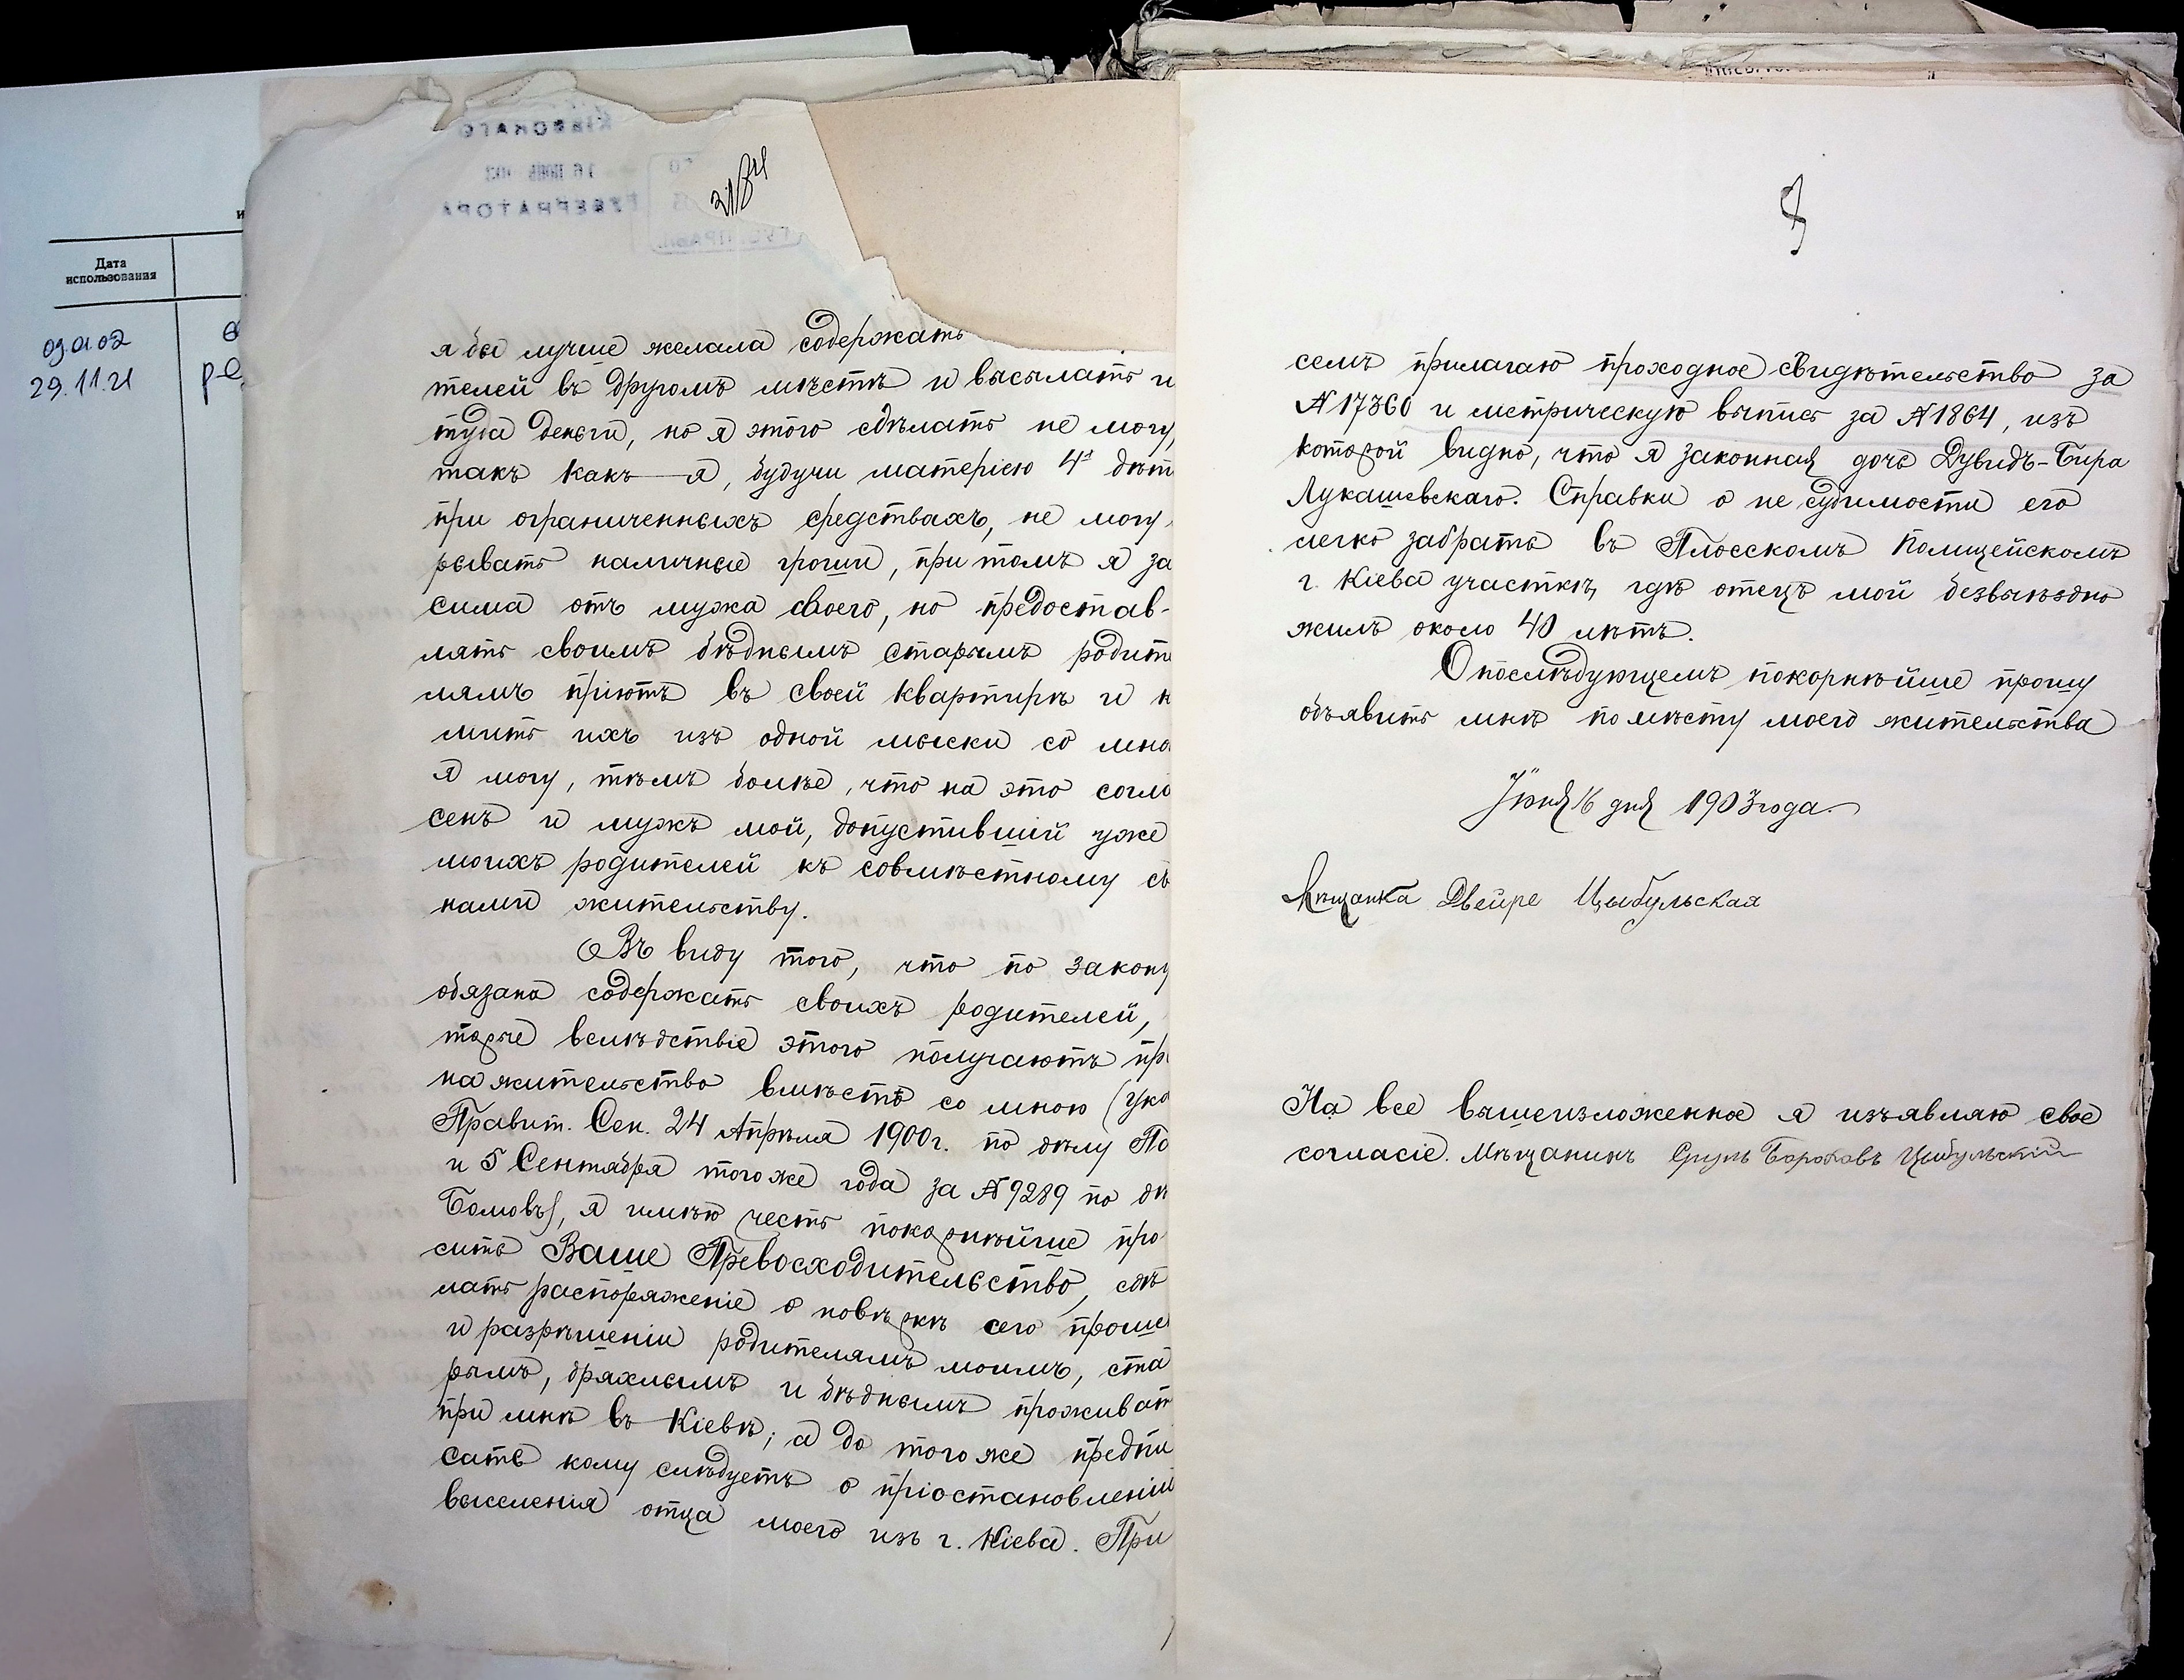 Дата
использования
09.01.02
29.11.21
я бы лучше желала содержать
телей въ другомъ мѣстѣ и высылать и
туда деньги, но я этого сдѣлать не могу,
такъ какъ я, будучи матерiею 4х дѣт
при ограниченныхъ средствахъ, не могу
рывать наличные гроши, притомъ я за
сима отъ мужа своего, но предостав-
лять своимъ бѣднымъ старымъ родите
лямъ прiютъ въ своей квартирѣ и к
мить ихъ изъ одной мыски со мно
я могу, тѣмъ болѣе, что на это согла
сенъ и мужъ мой, допустившiй уже
моихъ родителей къ совмѣстному съ
нами жительству.
Въ виду того, что по закону
обязана содержать своихъ родителей,
торые вслѣдствiе этого получаютъ пр
на жительство вмѣстѣ со мною (ука
Правит. Сен. 24 Апрѣля 1900г. по дѣлу По
и 5 Сентября того же года за №9289 по дѣ
Боловъ), я имѣю честь покорнѣйше про
сить Ваше Превосходительство, сдѣ
лать распоряженiе о повѣркѣ сего проше
и разрѣшенiи родителямъ моимъ, ста
рымъ, дряхлымъ и бѣднымъ проживат
при мнѣ въ Кiевѣ; а до того же предпи
сать кому слѣдуетъ о прiостановленiи
выселенiя отца моего изъ г. Кiева. При
семъ прилагаю проходное свидѣтельство за
№17360 и метрическую выпись за №1864, изъ
которой видно, что я законная дочь Дувидъ-Бира
Лукашевскаго. Справки о не судимости его
легко забрать въ Плосскомъ Полицейскомъ
г. Кiева участкѣ, гдѣ отецъ мой безвыѣздно
жилъ около 40 лѣтъ.
О послѣдующемъ покорнѣйше прошу
объявить мнѣ по мѣсту моего жительства
Iюня 16 дня 1903 года.
Мѣщанка Двейре Цыбульская
На все вышеизложенное я изъявляю свое
согласiе. Мѣщанинъ Сруль Бороховъ Цыбульскiй